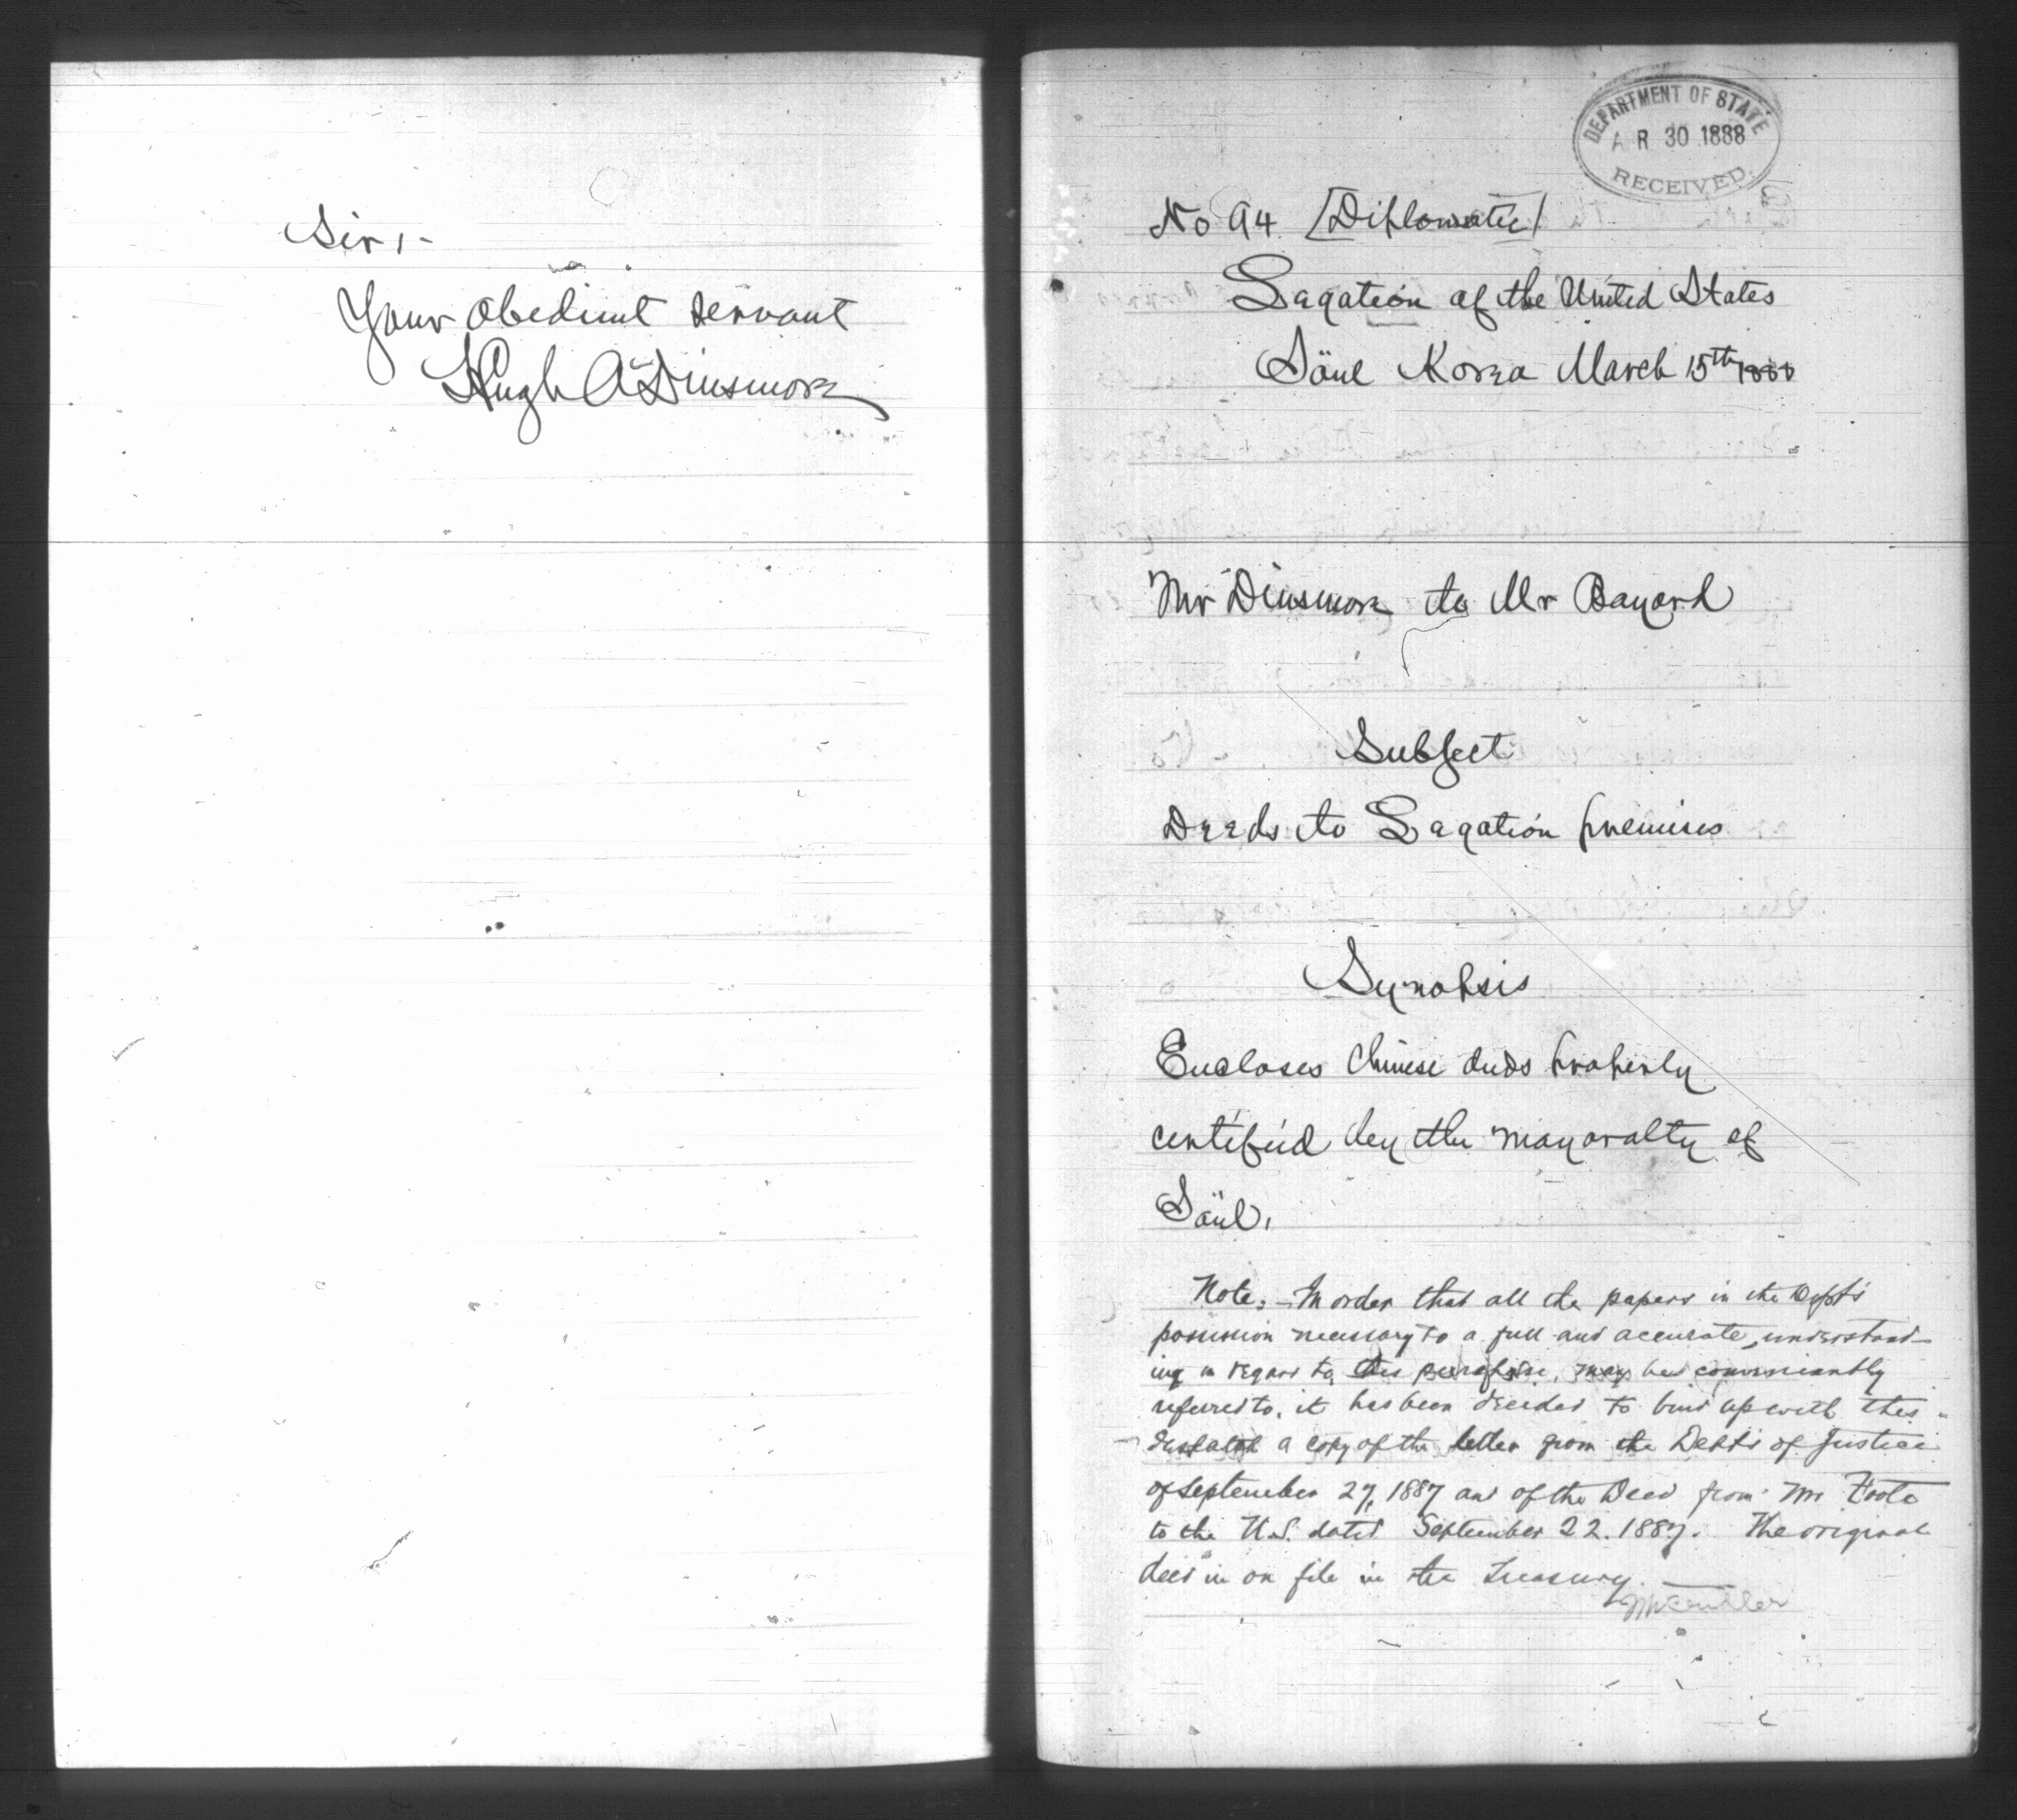 Sir,-
Your obedient servant
Hugh A Dinsmore
DEPARTMENT OF STATE
A R 30 1888
RECEIVED.
No 94 [Diplomatic]
Legation of the United States
Söul Korea March 15th 1888
Mr Dinsmore to Mr Bayard
Subject
Deeds to Legation premises
Synopsis
Encloses Chinese deeds properly
certified by the mayoralty of
Söul.
Note:- In order that all the papers in the Dept's
possession necessary to a full and accurate understand-
ing in regard to this purchase, may be conveniently
referred to, it has been decided to bind up with this
despatch a copy of the letter from the Dept of Justice
of September 27, 1887 and of the Deed from Mr Foote
to the U.S. dated September 22. 1887. The original
deed is on file in the Treasury.